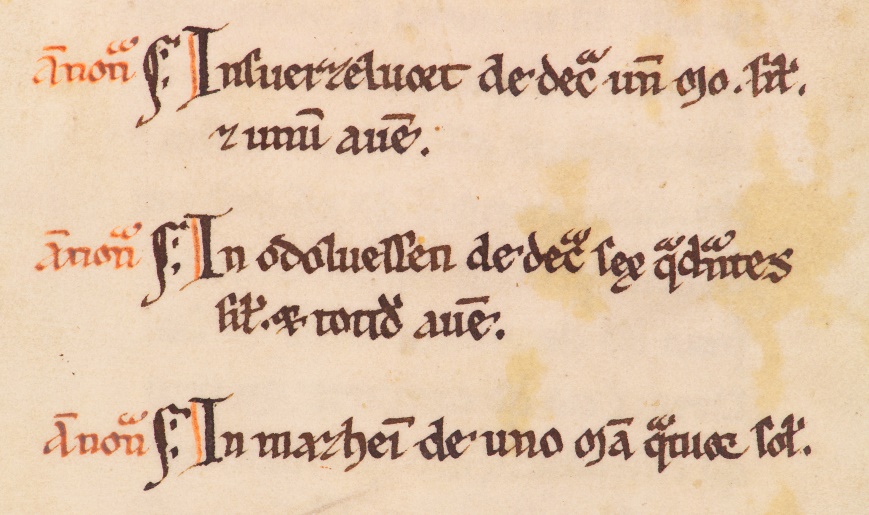 An̄on̄ S; Insuerzeluort de dec̄ un̄ mo. sil.
⁊ unū auēn.
An̄on̄ S; In odoluessen de dec̄ sex qͣdͣntes
sil. ⁊ totid auēn.
An̄on̄ S; In mazheī de uno mā qͣtuor sol.